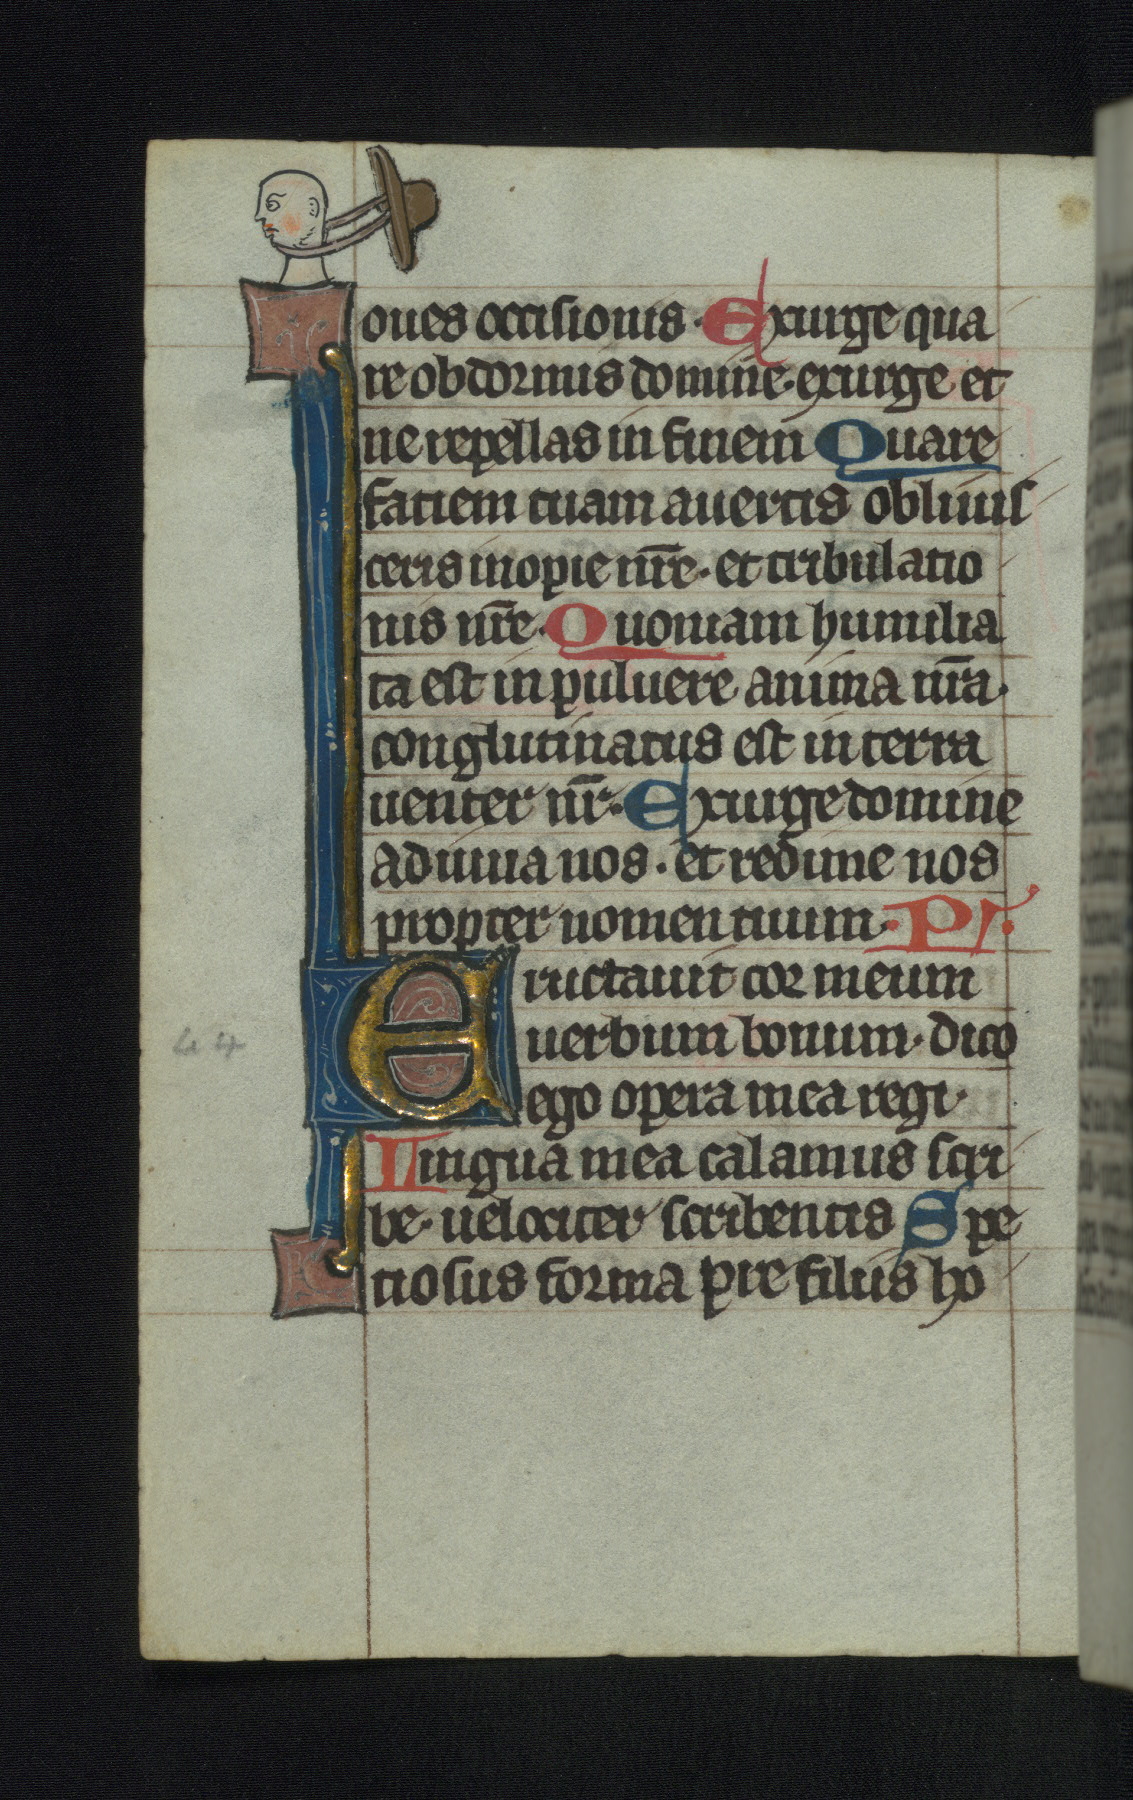 oues occisionis. Exurge qua
re obdormis domine. exurge et
ne repellas in finem Quare
faciem tuam auertis obliuis
ceris inopie nr̄e. et tribulatio
nis nr̄e. Quoniam humilia
ta est in puluere anima nr̄a.
conglutinatus est in terra
uenter nr̄. Exurge domine
adiuua nos. et redime nos
propter nomen tuum. Ps.
Eructauit cor meum
uerbum bonum. dico
ego opera mea regi.
Lingua mea calamus scri
be. uelociter scribentis Spe
ciosus forma pre filiis ho
44